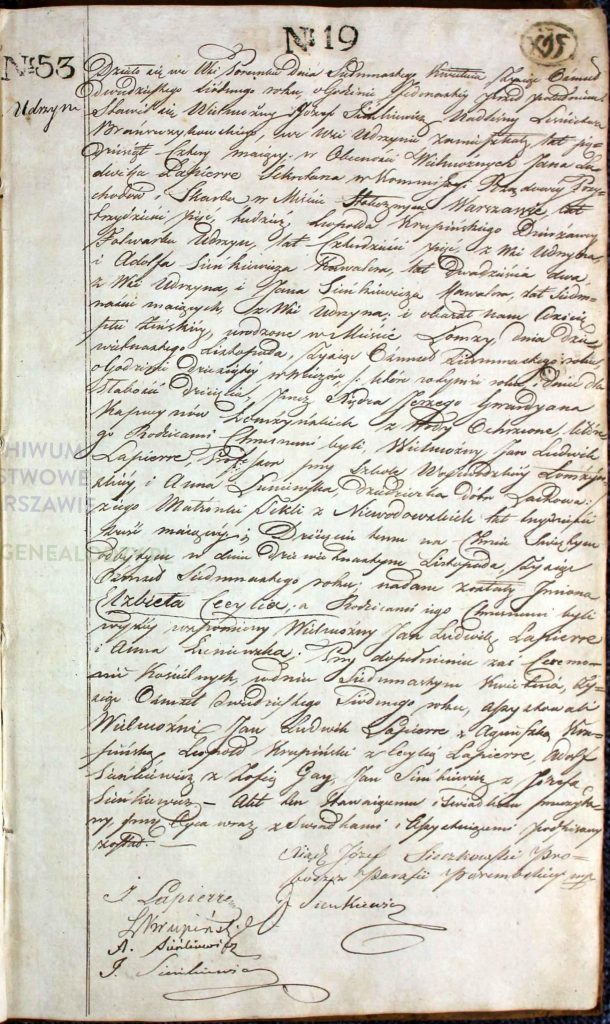 № 19
№ 53
Udrzyn
Działo się we Wsi Porembie dnia Siedmnastego Kwietnia Tysiąc Ośmset
Dwudziestego Siódmego roku, o Godzinie Jedenastej przed południem
Stawił się Wielmożny Józef Sienkiewicz Nadleśny Leśnictwa
we Wsi Udrzynie zamieszkały, lat
dziesiąt Cztery maiący. w Obecności Wielmożnych Jana Lu-
dwika Lapierre Sekretarza w Kommissyi Rządowey Przy-
chodów i Skarbu w Mieście Stołecznym Warszawie, lat
trzydzieści pięć, tudzież Leopolda Krupińskiego Dzierżawcy
Folwarku Udrzyn, lat Czterdzieści pięć z Wsi Udrzyna
i Adolfa Sienkiewicza Kawalera, lat Dwadzieścia dwa
z Wsi Udrzyna, i Jana Sienkiewicza Kawalera, lat Siedm-
naście maiących, z Wsi Udrzyna; i okazał nam Dziecię
płci żeńskiey, urodzone w Mieście Łomży, dnia Dzie-
więtnastego Listopada, Tysiąc Ośmset Siedmnastego roku
o Godzinie Dziesiątey w Wieczór, które tegoż roku, i dnia dla
słabości Dziecięcia, przez Xiędza Jerzego Gwardyana
Kapucynów Łomżyńskich z Wody Ochrzcone, które-
go Rodzicami Chrzesnemi byli, Wielmożny Jan Ludwik
Lapierre, Professor przy Szkole Wojewódzkiey Łomżyń-
skiey i Anna Dziedziczka dóbr
Małżonki Tekli z Niewodowskich lat trzydzieści
sześć maiącey; Dziecięciu temu na Chrzcie Świętym
odbytym w dniu Dziewiętnastym Listopada, Tysiąc
Ośmset Siedmnastego roku, nadane zostały Imiona
Elżbieta Cecylia; a Rodzicami iego Chrzesnemi byli
wyżey wspomniony Wielmożny Jan Ludwik Lapierre
i Anna Przy dopełnieniu zaś Ceremo-
nii Kościelnych, w dniu Siedmnastym Kwietnia, Ty-
siąc Ośmset Dwudziestego Siódmego roku, assystowali
Wielmożni Jan Ludwik Lapierre z Agnieszką Kru-
pińską, Leopold Krupiński z Cecylią Lapierre, Adolf
Sienkiewicz z Zofią Gay, Jan Sienkiewicz z Józefą
Sienkiewicz — Akt ten stawaiącemu i Świadkom przeczyta-
ny, przez Oyca wraz z Świadkami i Assystuiącemi podpisany
został. —
Xiądz Józef Pro-
boszcz Parafii Porembskiey mp
J Sienkiewicz
J Lapierre
L Krupiński
A. Sienkiewicz
J. Sienkiewicz
ARCHIWUM
PAŃSTWOWE
WARSZAWIE